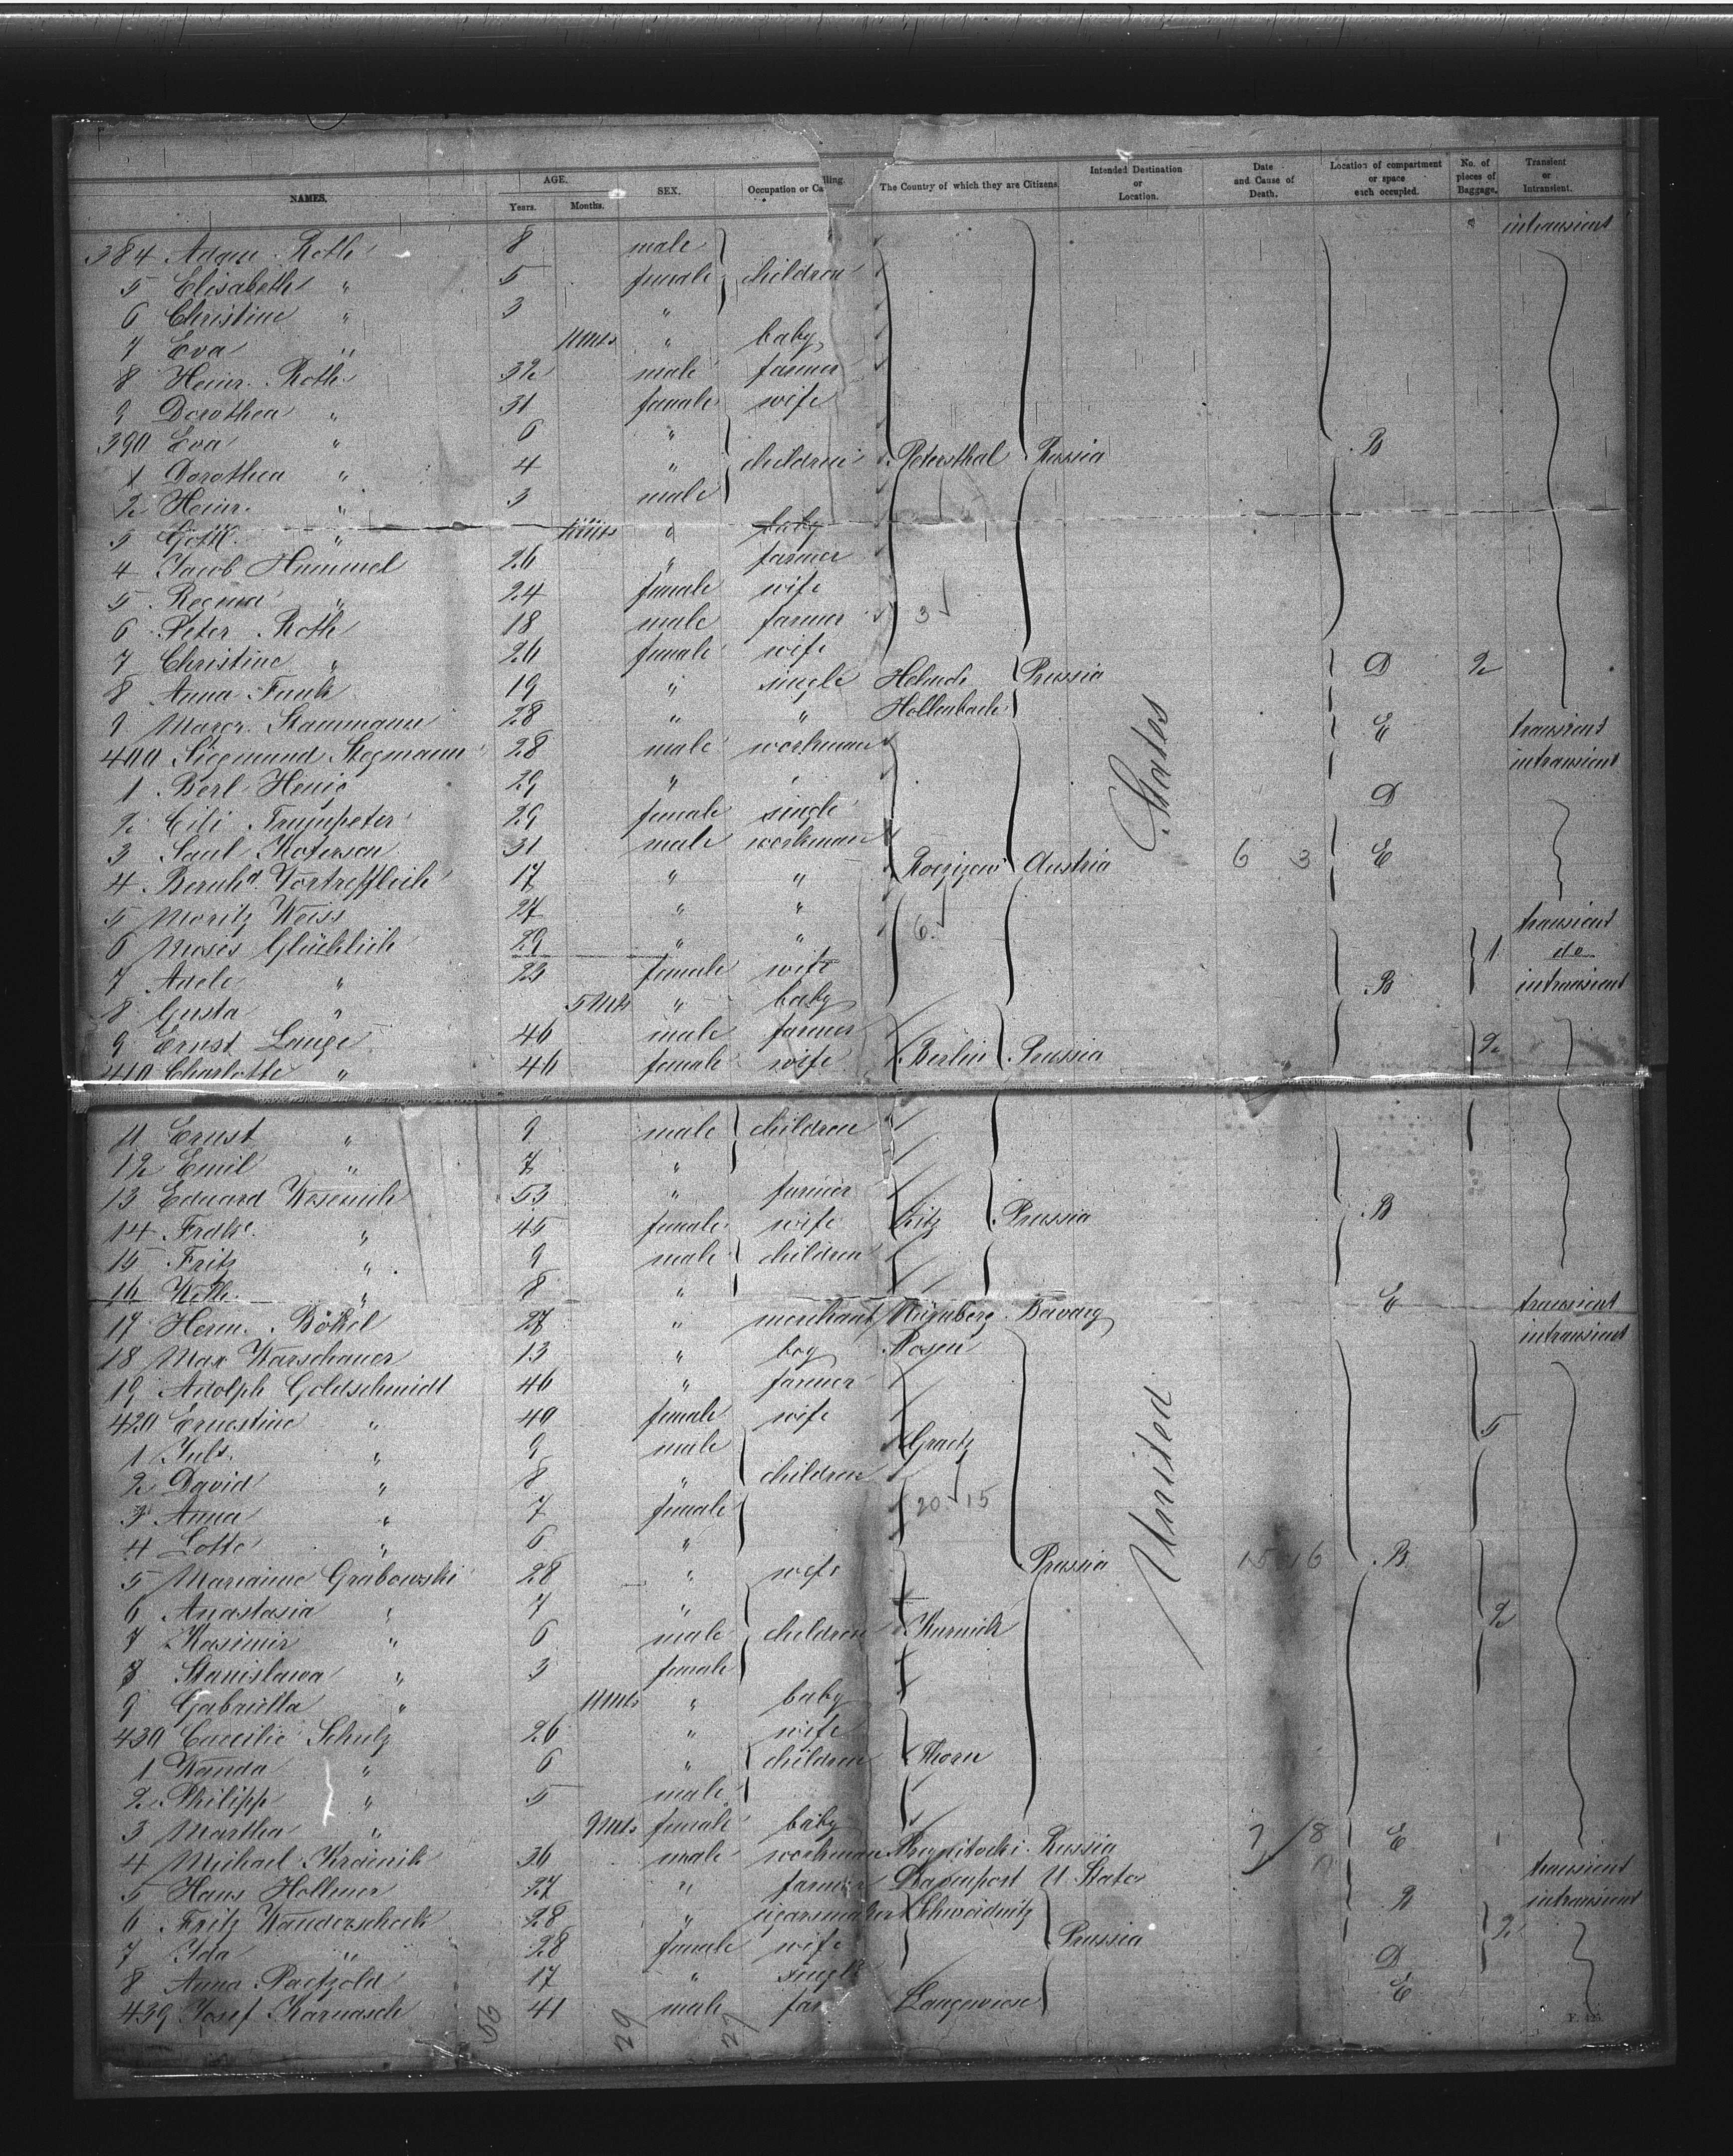 NAMES. AGE. Years. Months. SEX. Occupation or Calling. The Country of which they are Citizens. Intended Destination or Location. Date and Cause of Death. Location of compartment or space each occupied. No. of pieces of Baggage. Transient or Intransient.
384 Adam Roth 8 male intransient
5 Elisabeth " 5 female children
6 Christine " 3 "
7 Eva " 11 Mts " baby
8 Heinr. Roth 32 male farmer
9 Dorothea " 31 female wife
390 Eva " 6 "
1 Dorothea " 4 " children Petersthal Russia B
2 Heinr. " 3 male
3 Gottl. " " baby
4 Jacob Hummel 26 " farmer
5 Regina " 24 female wife
6 Peter Roth 18 male farmer 3
7 Christine " 20 female wife
8 Anna Funk 19 " single Prussia D 2
9 Margr. Stammann 28 " " Hollenbach
400 Siegmund Stegmann 28 male workman E transient
1 Berl Henig 29 " " intransient
2 Cili Trumpeter 29 female single D
3 Saul 31 male workman
4 Bernhd. Vortrefflich 17 " " Austria 6 3 E
5 Moritz Weiss 27 " "
6 Moses Glücklich 29 " " 6 transient
7 Adele " 23 female wife 1 do
8 Gusta " 5 Mts " baby B intransient
9 Ernst Lange 46 male farmer
410 Charlotte " 46 female wife Berlin Prussia 2
11 Ernst " 9 male children
12 Emil " 7 "
13 Eduard 53 " farmer
14 Fredke. " 45 female wife Prussia B
15 Fritz " 9 male children
16 Wilh. " 8 "
17 Herm. 27 " merchant Nürnberg Bavaria E transient
18 Max Warschauer 13 " boy Posen intransient
19 Adolph Goldschmidt 46 " farmer
420 Ernestine " 40 female wife
1 Juls. " 9 male Graetz 5
2 David " 8 " children
3 Anna " 7 female 20 15
4 Lotte " 6 "
5 Marianne Grabowski 28 " wife Prussia 15 16 B
6 Anastasia " 7 "
7 Kasimir " 6 male children Kurnick 2
8 Stanislawa " 3 female
9 Gabriella " 11 Mts " baby
430 Caecilie Schulz 26 " wife
1 Wanda " 6 " children Thorn
2 Philipp " 5 male
3 Martha " 9 Mts female baby
4 Michael 36 male workman Russia 7 8 E
5 Hans Hollmer 27 " farmer Davenport U. States transient
6 Fritz Wanderscheck 28 " cigarsmaker Schweidnitz B intransient
7 Ida " 28 female wife Prussia 2
8 Anna Paetzold 17 " single D
439 Josef Karnasch 41 male Langewiese E
United States
29 27